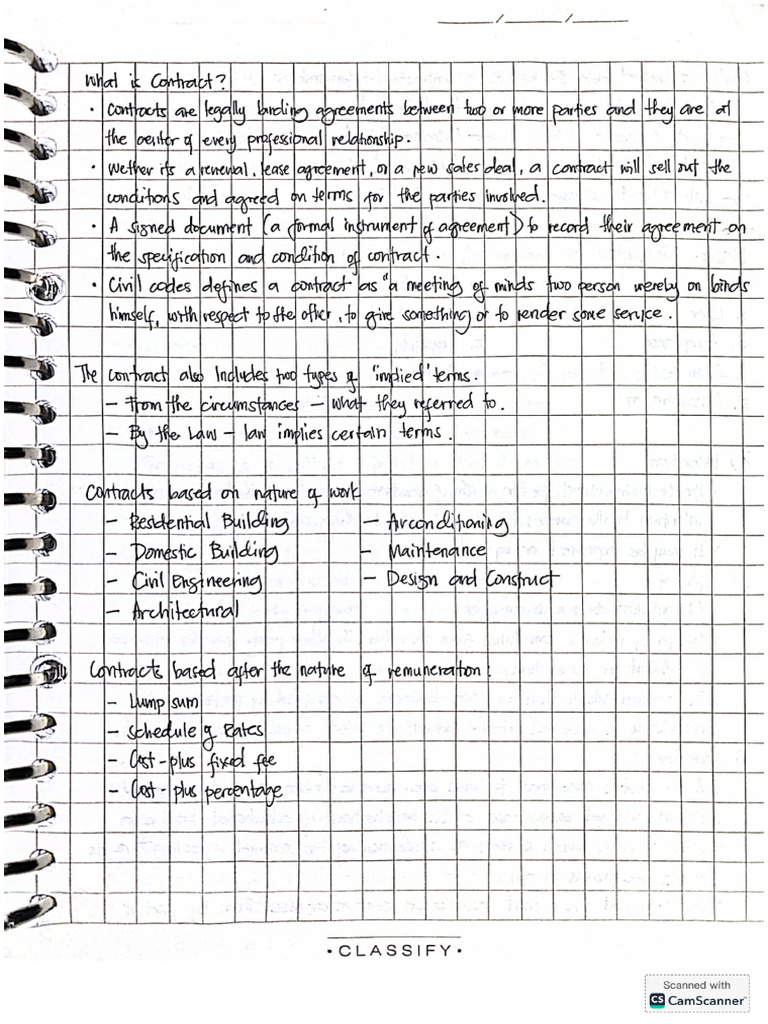 What is Contract?
• Contracts are legally binding agreements between two or more parties and they are at
the center of every professional relationship.
• Wether its a renewal, lease agreement, or a new sales deal, a contract will sell out the
conditions and agreed on terms for the parties involved.
• A signed document (a formal instrument of agreement) to record their agreement on
the specification and condition of contract.
• Civil codes defines a contract as "a meeting of minds two person werely on binds
himself, with respect to the other, to give something or to render some service.
The contract also Includes two types of "implied" terms.
– From the circumstances – what they referred to.
– By the Law – law implies certain terms.
Contracts based on nature of work
– Residential Building – Airconditioning
– Domestic Building – Maintenance
– Civil Engineering – Design and Construct
– Architectural
Contracts based after the nature of remuneration:
– Lump sum
– Schedule of Rates
– Cost-plus fixed fee
– Cost-plus percentage
• CLASSIFY •
Scanned with
CS CamScanner